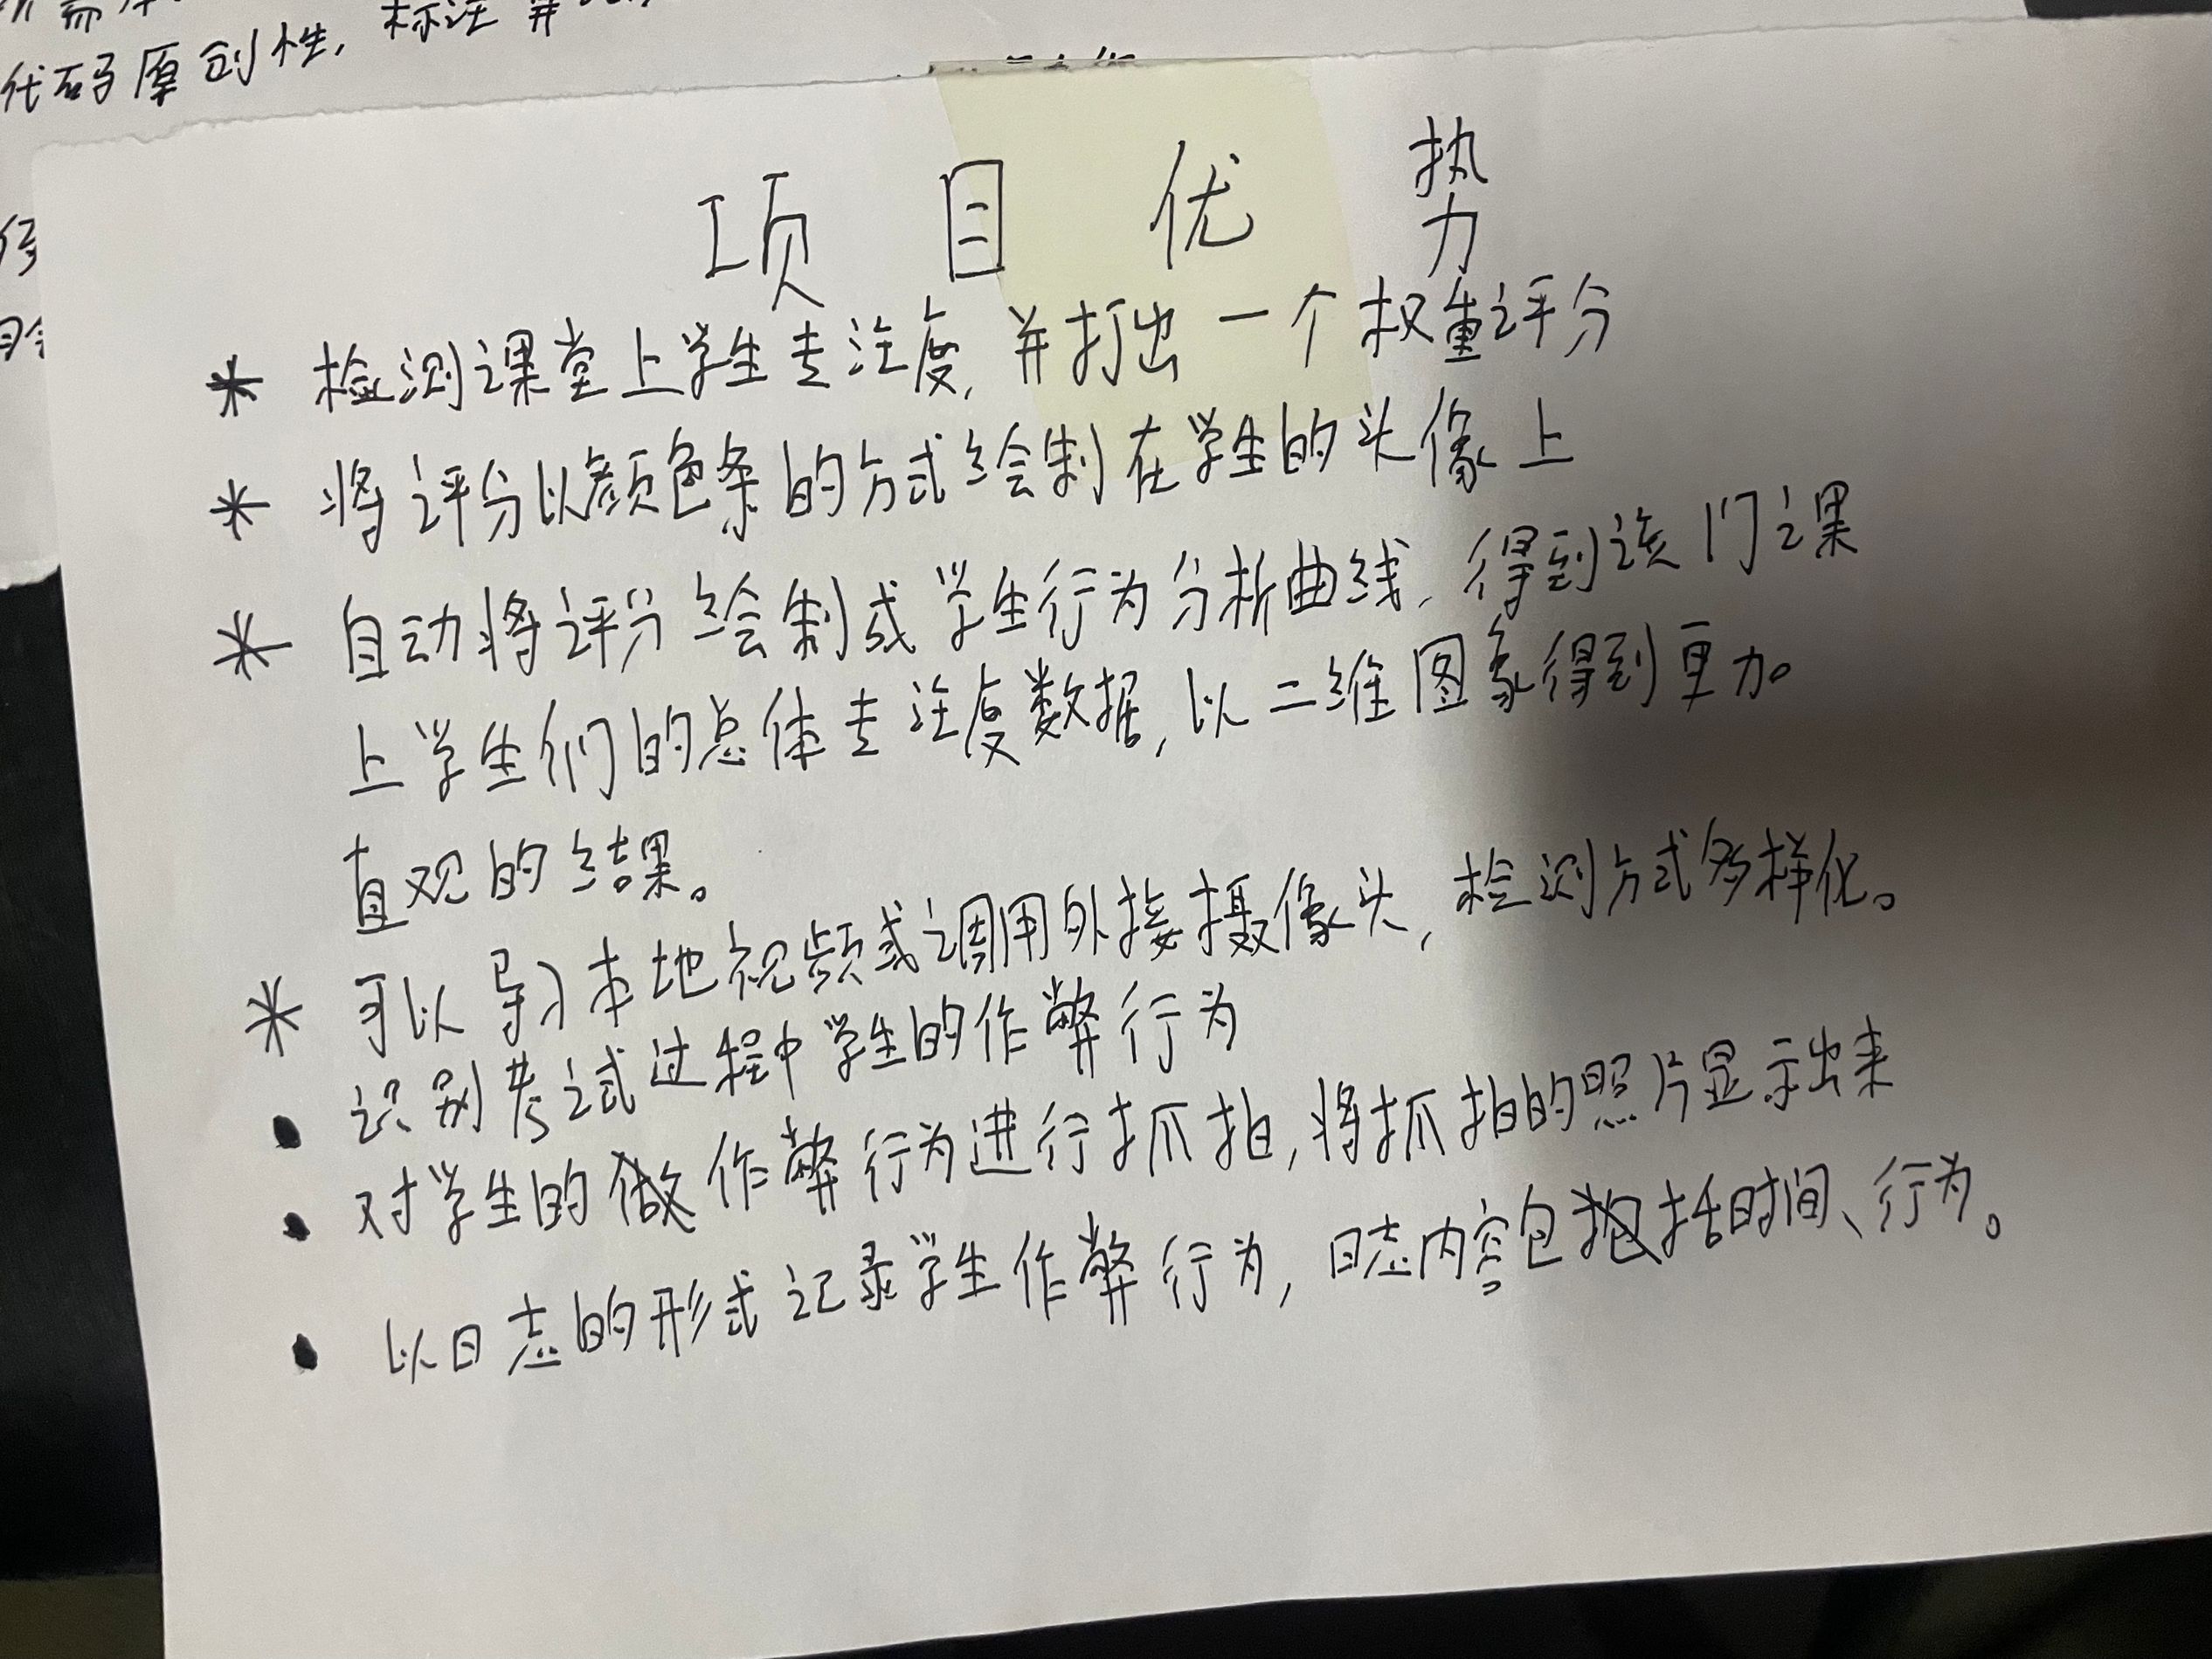 代码原创性, 标注
项目优势
* 检测课堂上学生专注度, 并打出一个权重评分
* 将评分以颜色条的方式绘制在学生的头像上
* 自动将评分绘制成学生行为分析曲线, 得到该门课
上学生们的总体专注度数据, 以二维图象得到更加
直观的结果。
* 可以导入本地视频或调用外接摄像头, 检测方式多样化。
• 识别考试过程中学生的作弊行为
• 对学生的作弊行为进行抓拍, 将抓拍的照片显示出来
• 以日志的形式记录学生作弊行为, 日志内容包括时间、行为。